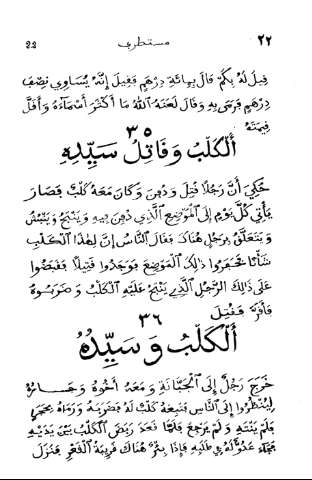 22 مستطرف ٢٢
قِيلَ لَهُ بِكَمْ قَالَ بِمِائَةِ دِرْهَمٍ فَقِيلَ إِنَّهُ يُسَاوِي نِصْفَ
دِرْهَمٍ فَرَمَى بِهِ وَقَالَ لَعَنَهُ اللهُ مَا أَكْثَرَ أَسْمَاءَهُ وَأَقَلَّ
قِيمَتَهُ
٣٥
أَلْكَلْبُ وَقَاتِلُ سَيِّدِهِ
حُكِيَ أَنَّ رَجُلًا قُتِلَ وَدُفِنَ وَكَانَ مَعَهُ كَلْبٌ فَصَارَ
يَأْتِي كُلَّ يَوْمٍ إِلَى ٱلْمَوْضِعِ ٱلَّذِي دُفِنَ فِيهِ وَيَنْبَحُ وَيَنْبُشُ
وَيَتَعَلَّقُ بِرَجُلٍ هُنَاكَ فَقَالَ ٱلنَّاسُ إِنَّ لِهٰذَا ٱلْكَلْبِ
شَأْنًا فَحَفَرُوا ذٰلِكَ ٱلْمَوْضِعَ فَوَجَدُوا قَتِيلًا فَقَبَضُوا
عَلَى ذٰلِكَ ٱلرَّجُلِ ٱلَّذِي يَنْبَحُ عَلَيْهِ ٱلْكَلْبُ وَضَرَبُوهُ
فَأَقَرَّ فَقُتِلَ
٣٦
أَلْكَلْبُ وَسَيِّدُهُ
خَرَجَ رَجُلٌ إِلَى ٱلْجَبَّانَةِ وَمَعَهُ أَخُوهُ وَجَارُهُ
لِيَنْظُرُوا إِلَى ٱلنَّاسِ فَتَبِعَهُ كَلْبٌ لَهُ فَضَرَبَهُ وَرَمَاهُ بِحَجَرٍ
فَلَمْ يَنْتَهِ وَلَمْ يَرْجِعْ فَلَمَّا قَعَدَ رَبَضَ ٱلْكَلْبُ بَيْنَ يَدَيْهِ
فَجَاءَ عَدُوٌّ لَهُ فِي طَلَبِهِ فَإِذَا بِئْرٌ هُنَاكَ قَرِيبَةُ ٱلْقَعْرِ فَنَزَلَ